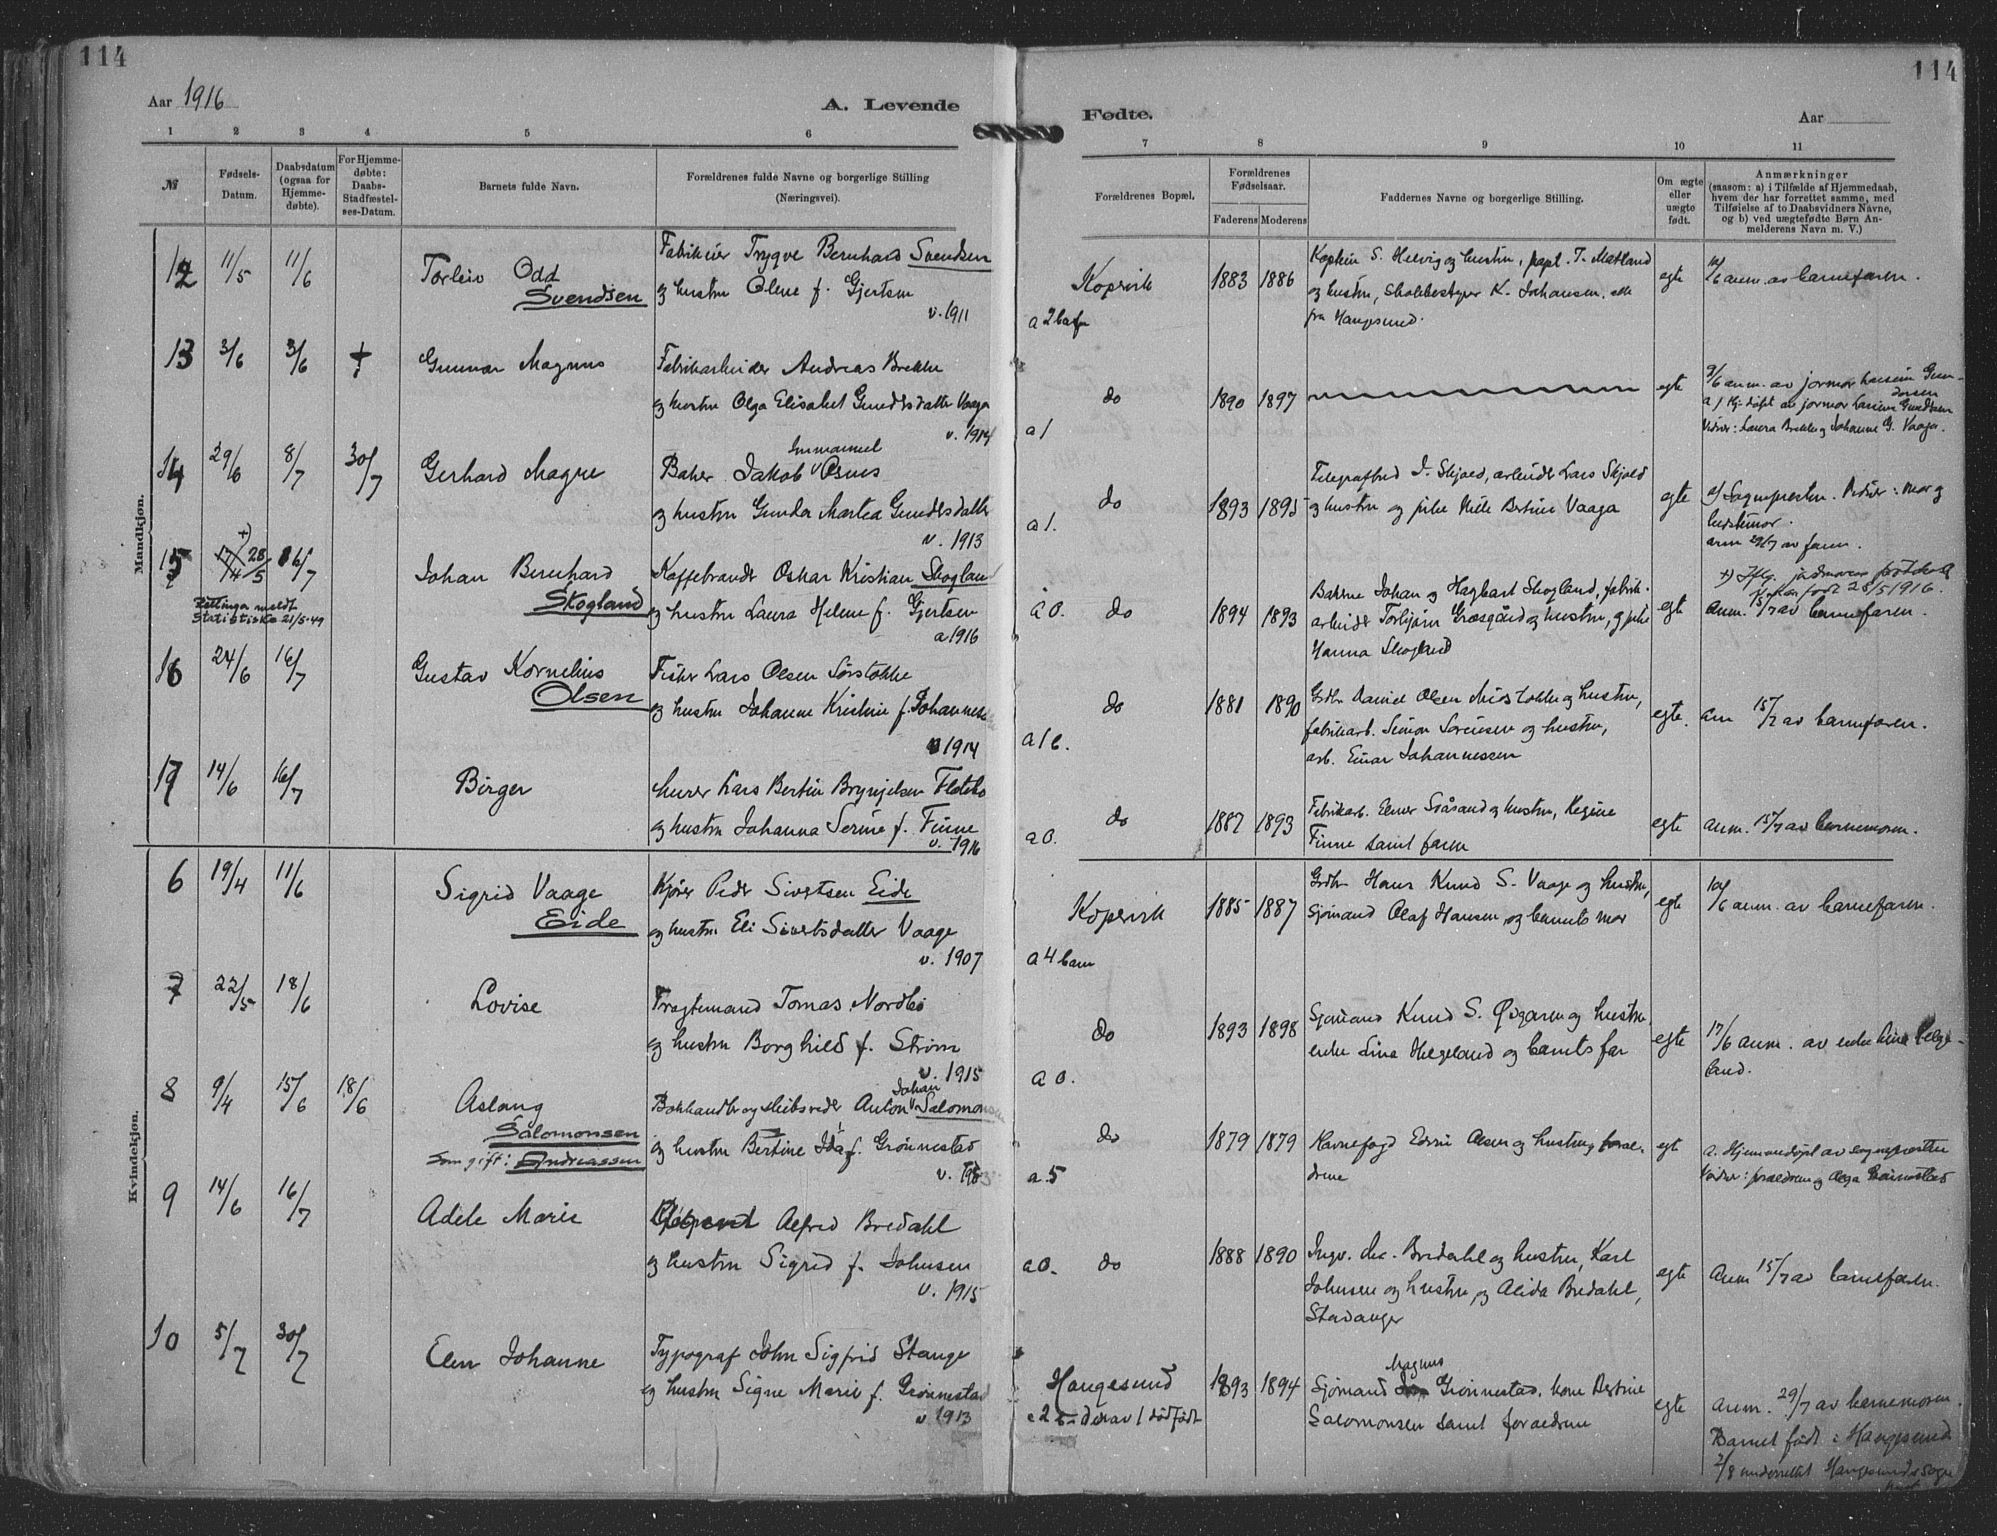 114
114
Aar 1916
A. Levende
Fødte.
Aar
1 2 3 4 5 6
7 8 9 10 11
№
Fødsels-
Datum.
Daabsdatum
(ogsaa for
Hjemme-
døbte).
For Hjemme-
døbte:
Daabs-
Stadfæstel-
ses-Datum.
Barnets fulde Navn.
Forældrenes fulde Navne og borgerlige Stilling
(Næringsvei).
Forældrenes Bopæl.
Forældrenes
Fødselsaar.
Faderens Moderens
Faddernes Navne og borgerlige Stilling.
Om ægte
eller
uægte
født.
Anmærkninger
(saasom: a) i Tilfælde af Hjemmedaab,
hvem der har forrettet samme, med
Tilføielse af to Daabsvidners Navne,
og b) ved uægtefødte Børn An-
melderens Navn m. V.)
Mandkjøn.
12 11/5 11/6
Torleiv Odd
Svendsen
Fabrikeier Trygve Bernhard Svendsen
og hustru Oline f. Gjertsen
v. 1911
Kopervik
a 2 barn
1883 1886
Kaptein S. Helvig og hustru, T. Matland
og hustru, skolebestyrer K. Johansen, alle
fra Haugesund.
egte
10/6 anm. av barnefaren.
13 3/6 3/6 +
Gunnar Magnus
Fabrikarbeider Andreas Brekke
og hustru Olga Elisabet Gundersdatter Vaaga
v. 1914
do
a 1
1890 1897
egte
3/6 anm. av jormor
a) Hj. døpt av jormor
Vidner: Laura Brekke og Johanne G. Vaaga.
14 29/6 8/7 30/7
Gerhard Magne
Immanuel
Baker Jakob Osnes
og hustru Gunda Martea Gundersdatter
v. 1913
do
a 1.
1893 1895
Telegrafbud J. Skjold, arbeider Lars Skjold
og hustru og pike Bertine Vaaga
egte
a) Sognepresten. Vidner: Mor og
bestemor.
anm 29/7 av faren.
15 17/4 +) 28/5 16/7
Rettinga meldt
Statistiske 21/5-49
Johan Bernhard
Skogland
Kaffebrender Oskar Kristian Skogland
og hustru Laura Helene f. Gjertsen
a 1916
a 0. do
1894 1893
Bakerne Johan og Hagbart Skogland, fabrik-
arbeider Torbjørn Græsgård og hustru, og pike
Hanna Skogland
egte
+) Iflg. jordmorens
født 28/5 1916.
anm. 15/7 av barnefaren.
16 24/6 16/7
Gustav Kornelius
Olsen
Fisker Lars Olsen Sørstokke
og hustru Johanne Kristine f. Johannes
v 1914
do
a 1 b.
1881 1890
Grdbr. Daniel Olsen Midstokke og hustru,
fabrikarb. Simon Sørensen og hustru,
arb. Einar Johannessen
egte.
Anm 15/7 av barnefaren.
17 14/6 16/7
Birger
Murer Lars Bertin Brynjelsen Flotebo
og hustru Johanna Serine f. Finne
v. 1916
do
a 0.
1887 1893
Fabrikarb. Elmer Svåsand og hustru, Regine
Finne samt faren
egte
anm. 15/7 av barnemoren.
Kvindekjøn.
6 19/4 11/6
Sigrid Vaage
Eide
Kjører Peder Sivertsen Eide
og hustru Eli Sivertsdatter Vaage
v. 1907
Kopervik
a 4 barn
1885 1887
Grdbr Hans Knud S. Vaage og hustru,
Sjømand Olaf Hansen, og barnets mor
egte
10/6 anm. av barnefaren.
7 22/5 18/6
Lovise
Fragtemand Tomas Nordbø
og hustru Borghild f. Strøm
v. 1915
do
a 0.
1893 1898
Sjømand Knud S. Øygaren og hustru,
enke Lina Helgeland og barnets far
egte
17/6 anm. av enke Lina Helge-
land.
8 9/4 15/6 18/6
Aslaug
Salomonsen
Som gift: Andreassen
Johan
Bokhandler og skibsreder Anton Salomonsen
og hustru Bertine Ida f. Grønnestad
v. 1903
do
a 5
1879 1879
Havnefogd Edvin Olsen og hustru, foræl-
drene
egte
a. Hjemmedøpt av sognepresten
Vidner: forældrene og Olga Grønnestad
9 14/6 16/7
Adele Marie
Alfred Bredahl
og hustru Sigrid f. Johnsen
v. 1915
a 0. do
1888 1890
Ingv. Bredahl og hustru, Karl
Johnsen og hustru, og Alida Bredahl,
Stavanger
egte
Anm 15/7 av barnefaren.
10 5/7 30/7
Elen Johanne
Typograf John Sigfrid Stange
og hustru Signe Marie f. Grønnestad
v 1913
Haugesund
a 2 derav 1 dødfødt
1893 1894
Magnus
Sjømand Grønnestad, kone Bertine
Salomonsen samt forældrene
egte
anm. 29/7 av barnemoren.
Barnet født i Haugesund
2/8 underrettet Haugesunds sogne